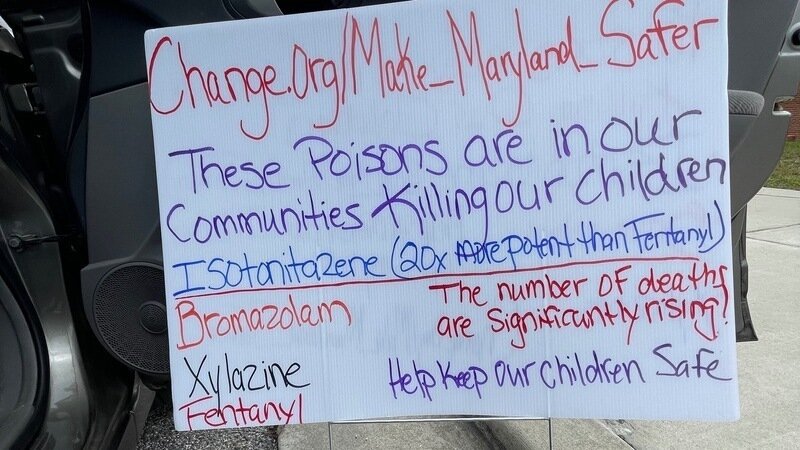 Change.Org/Make_Maryland_Safer
These Poisons are in our
Communities Killing our children
Isotonitazene (20x more potent than Fentanyl)
Bromazolam
The number of deaths
are significantly rising!
Xylazine
Help keep our children Safe
Fentanyl